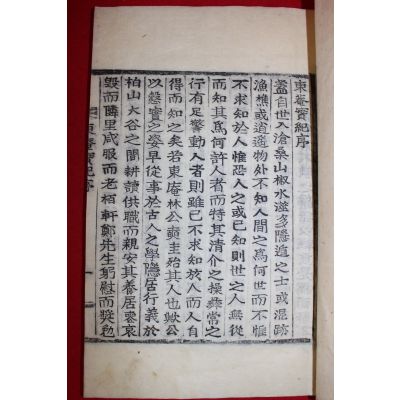 東庵實紀序
蓋自世入滄桑山椒水澨多隱遁之士或混跡
漁樵或逍遙物外不知人間之爲何世而不惟
不求知於人惟恐人之或已知則世之人無從
而知其爲何許人者而特其淸介之操彛常之
行有足警動人者則雖已不求知於人而人自
得而知之矣若東庵林公
以慤實之姿早從事於古人之學隱居行義於
柏山大谷之間耕讀供職而親安其養居喪哀
毁而隣里咸服而老栢軒鄭先生躬慰而奬勉
東庵實紀序
一